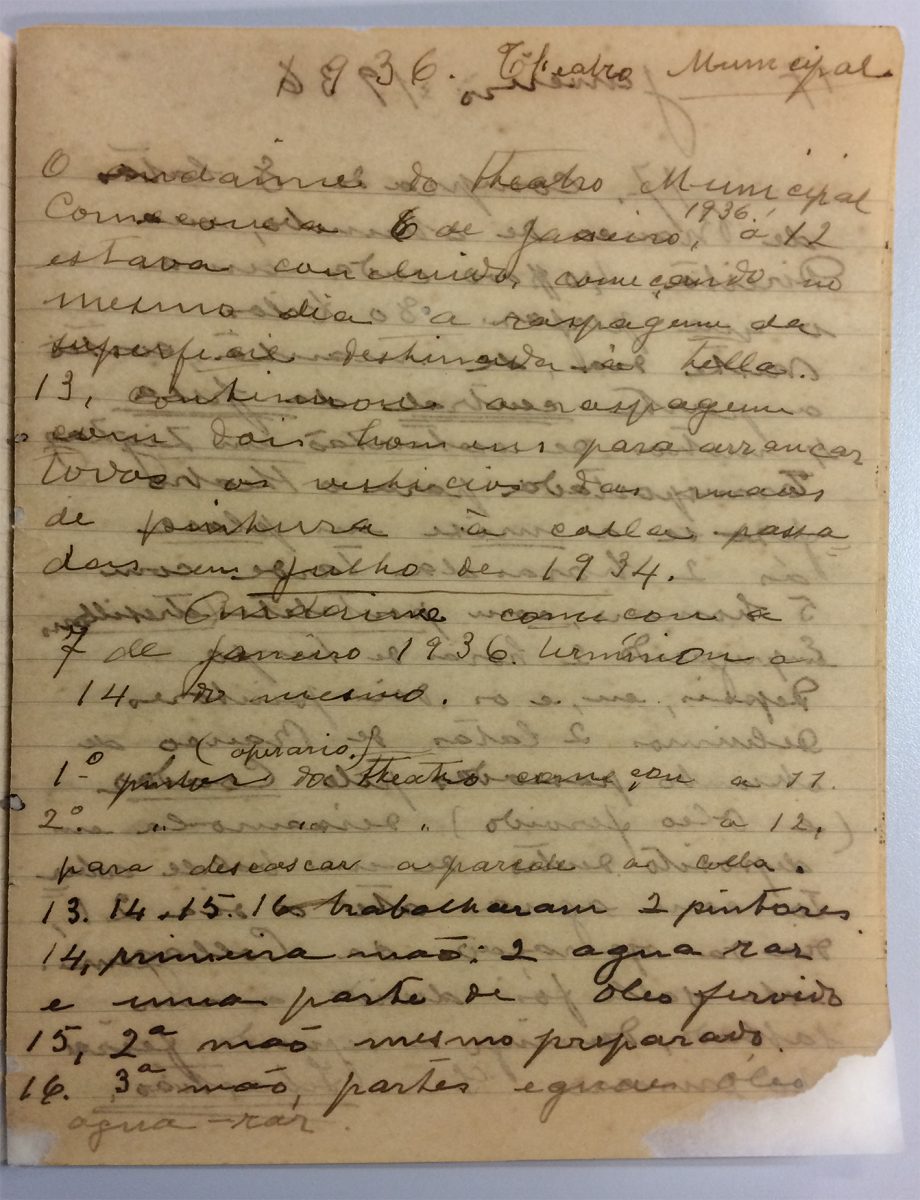 1936. Theatro Municipal.
O andaime do theatro Municipal
Começou a 6 de Janeiro, 1936, à 12
estava concluido, começando no
mesmo dia a raspagem da
superficie destinada à tella.
13, continuou a raspagem
com dois homens para arrancar
todos os vesticios das mãos
de pintura à colla passa-
das em Julho de 1934.
Andaime começou a
7 de Janeiro 1936. terminou a
14 do mesmo.
(operario)
1º pintor do theatro começou a 11.
2º. " " " à 12,
para descascar a parede de colla.
13. 14. 15. 16 trabalharam 2 pintores
14, primeira mão: 2 agua rar
e uma parte de oleo fervido
15, 2ª mão mesmo preparado.
16. 3ª mão, partes eguaes oleo
agua-rar.